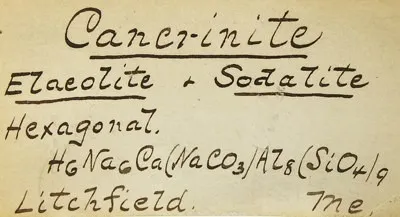 Cancrinite
Elaeolite + Sodalite
Hexagonal.
H6Na6Ca(NaCO3)Al8(SiO4)9
Litchfield. Me.